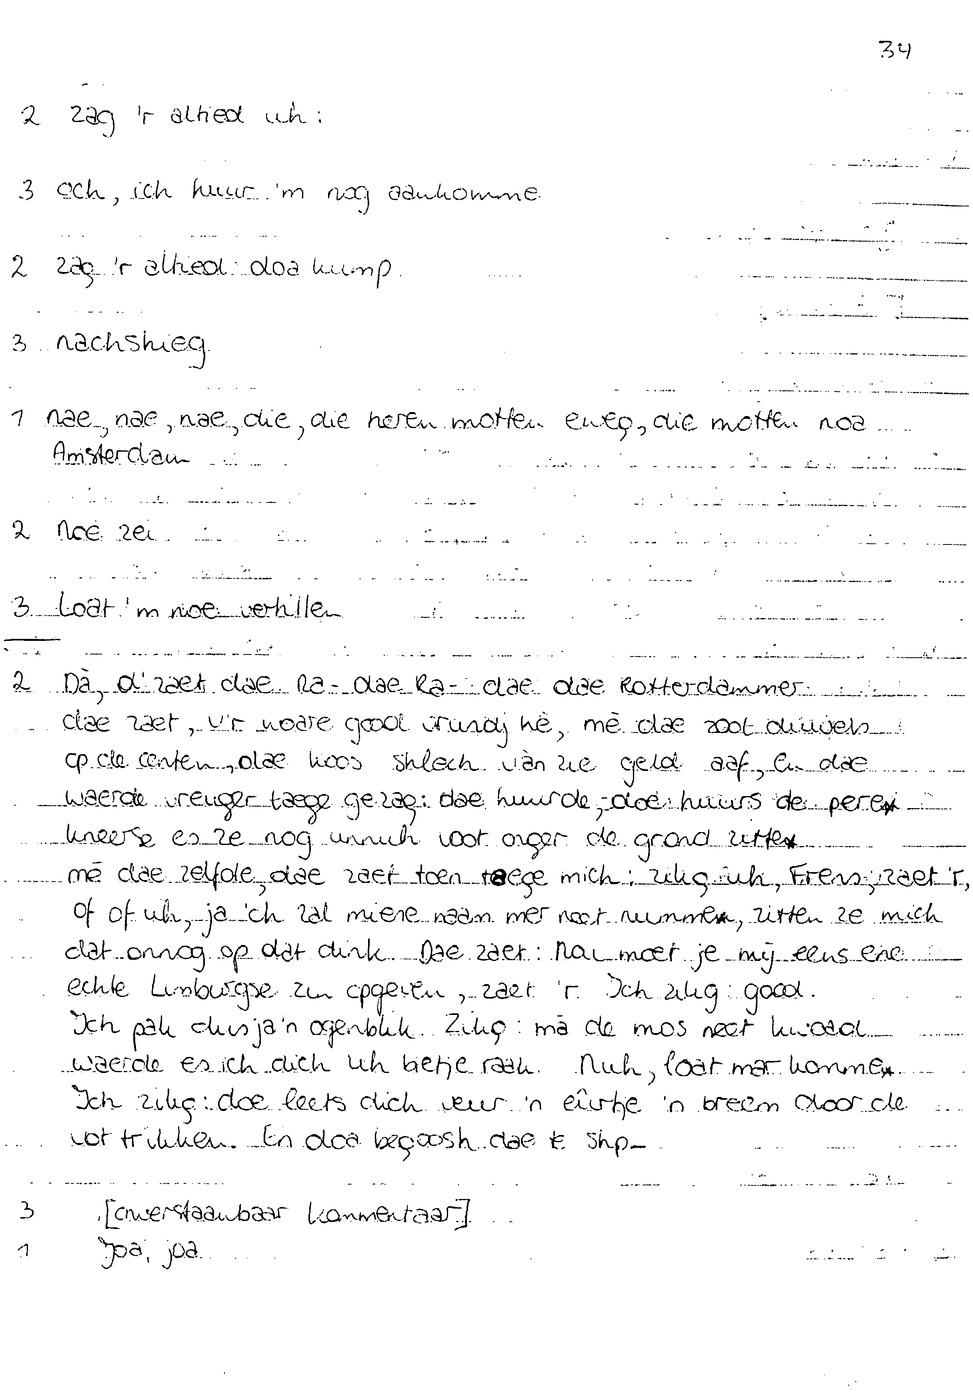 34
2 zag 'r altied uh:
3 och, ich huur 'm nog aankomme
2 zag 'r altied: doa kump
3 nachshieg
1 nae, nae, nae, die, die heren motten eweg, die motten noa
Amsterdam
2 Noe zei
3 Loat 'm noe vertillen
2 Dà, d' zaet dae Ra- dae Ra- dae dae Rotterdammer
dae zaet, v'r woare good vrundj hè, mè dae zoot duuvels
op de centen, dae koos shlech van zie geld aaf, En dae
waerde vreuger taege gezag: dae huurde, doe huurs de pere
kneerse es ze nog unnich voot onger de grond zitte
mè dae zelfde, dae zaet toen taege mich: zikg uh, Frens, zaet 'r,
of of uh, ja 'ch zal miene naam mer neet numme, zitten ze mich
dat onnog op dat dink. Dae zaet: Nau moet je mij eens ene
echte Limburgse zin opgeven, zaet 'r. Ich zikg: good.
Ich pak dus ja 'n ogenblik. Zikg: mà de mos neet kwoad
waerde es ich dich uh betje raak. Nuh, loat mar komme.
Ich zikg: doe leets dich veur 'n eûrtje 'n breem door de
vot trikken. En doa begoosh dae t shp-
3 [onverstaanbaar kommentaar]
1 Joa, joa